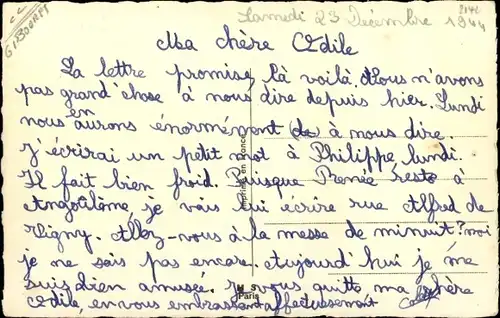 Samedi 23 Décembre
1944
Ma chère Odile
La lettre promise, là voilà. Nous n'avons
pas grand'chose à nous dire depuis hier. Lundi
en
nous aurons énormément (de) à nous dire.
J'écrirai un petit mot à Philippe, lundi.
Il fait bien froid. Puisque Renée reste à
Angoulême, je vais lui écrire rue Alfred de
Vigny. Allez-vous à la messe de minuit? moi
je ne sais pas encore. Aujourd'hui je me
suis bien amusée. Je vous quitte, ma chère
Odile, en vous embrassant affectueusement
M S
Paris